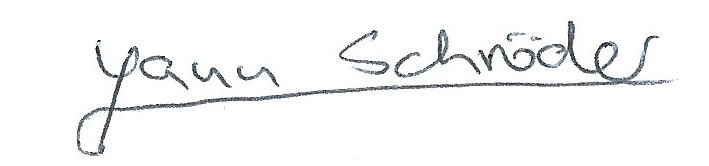 Yann Schröder